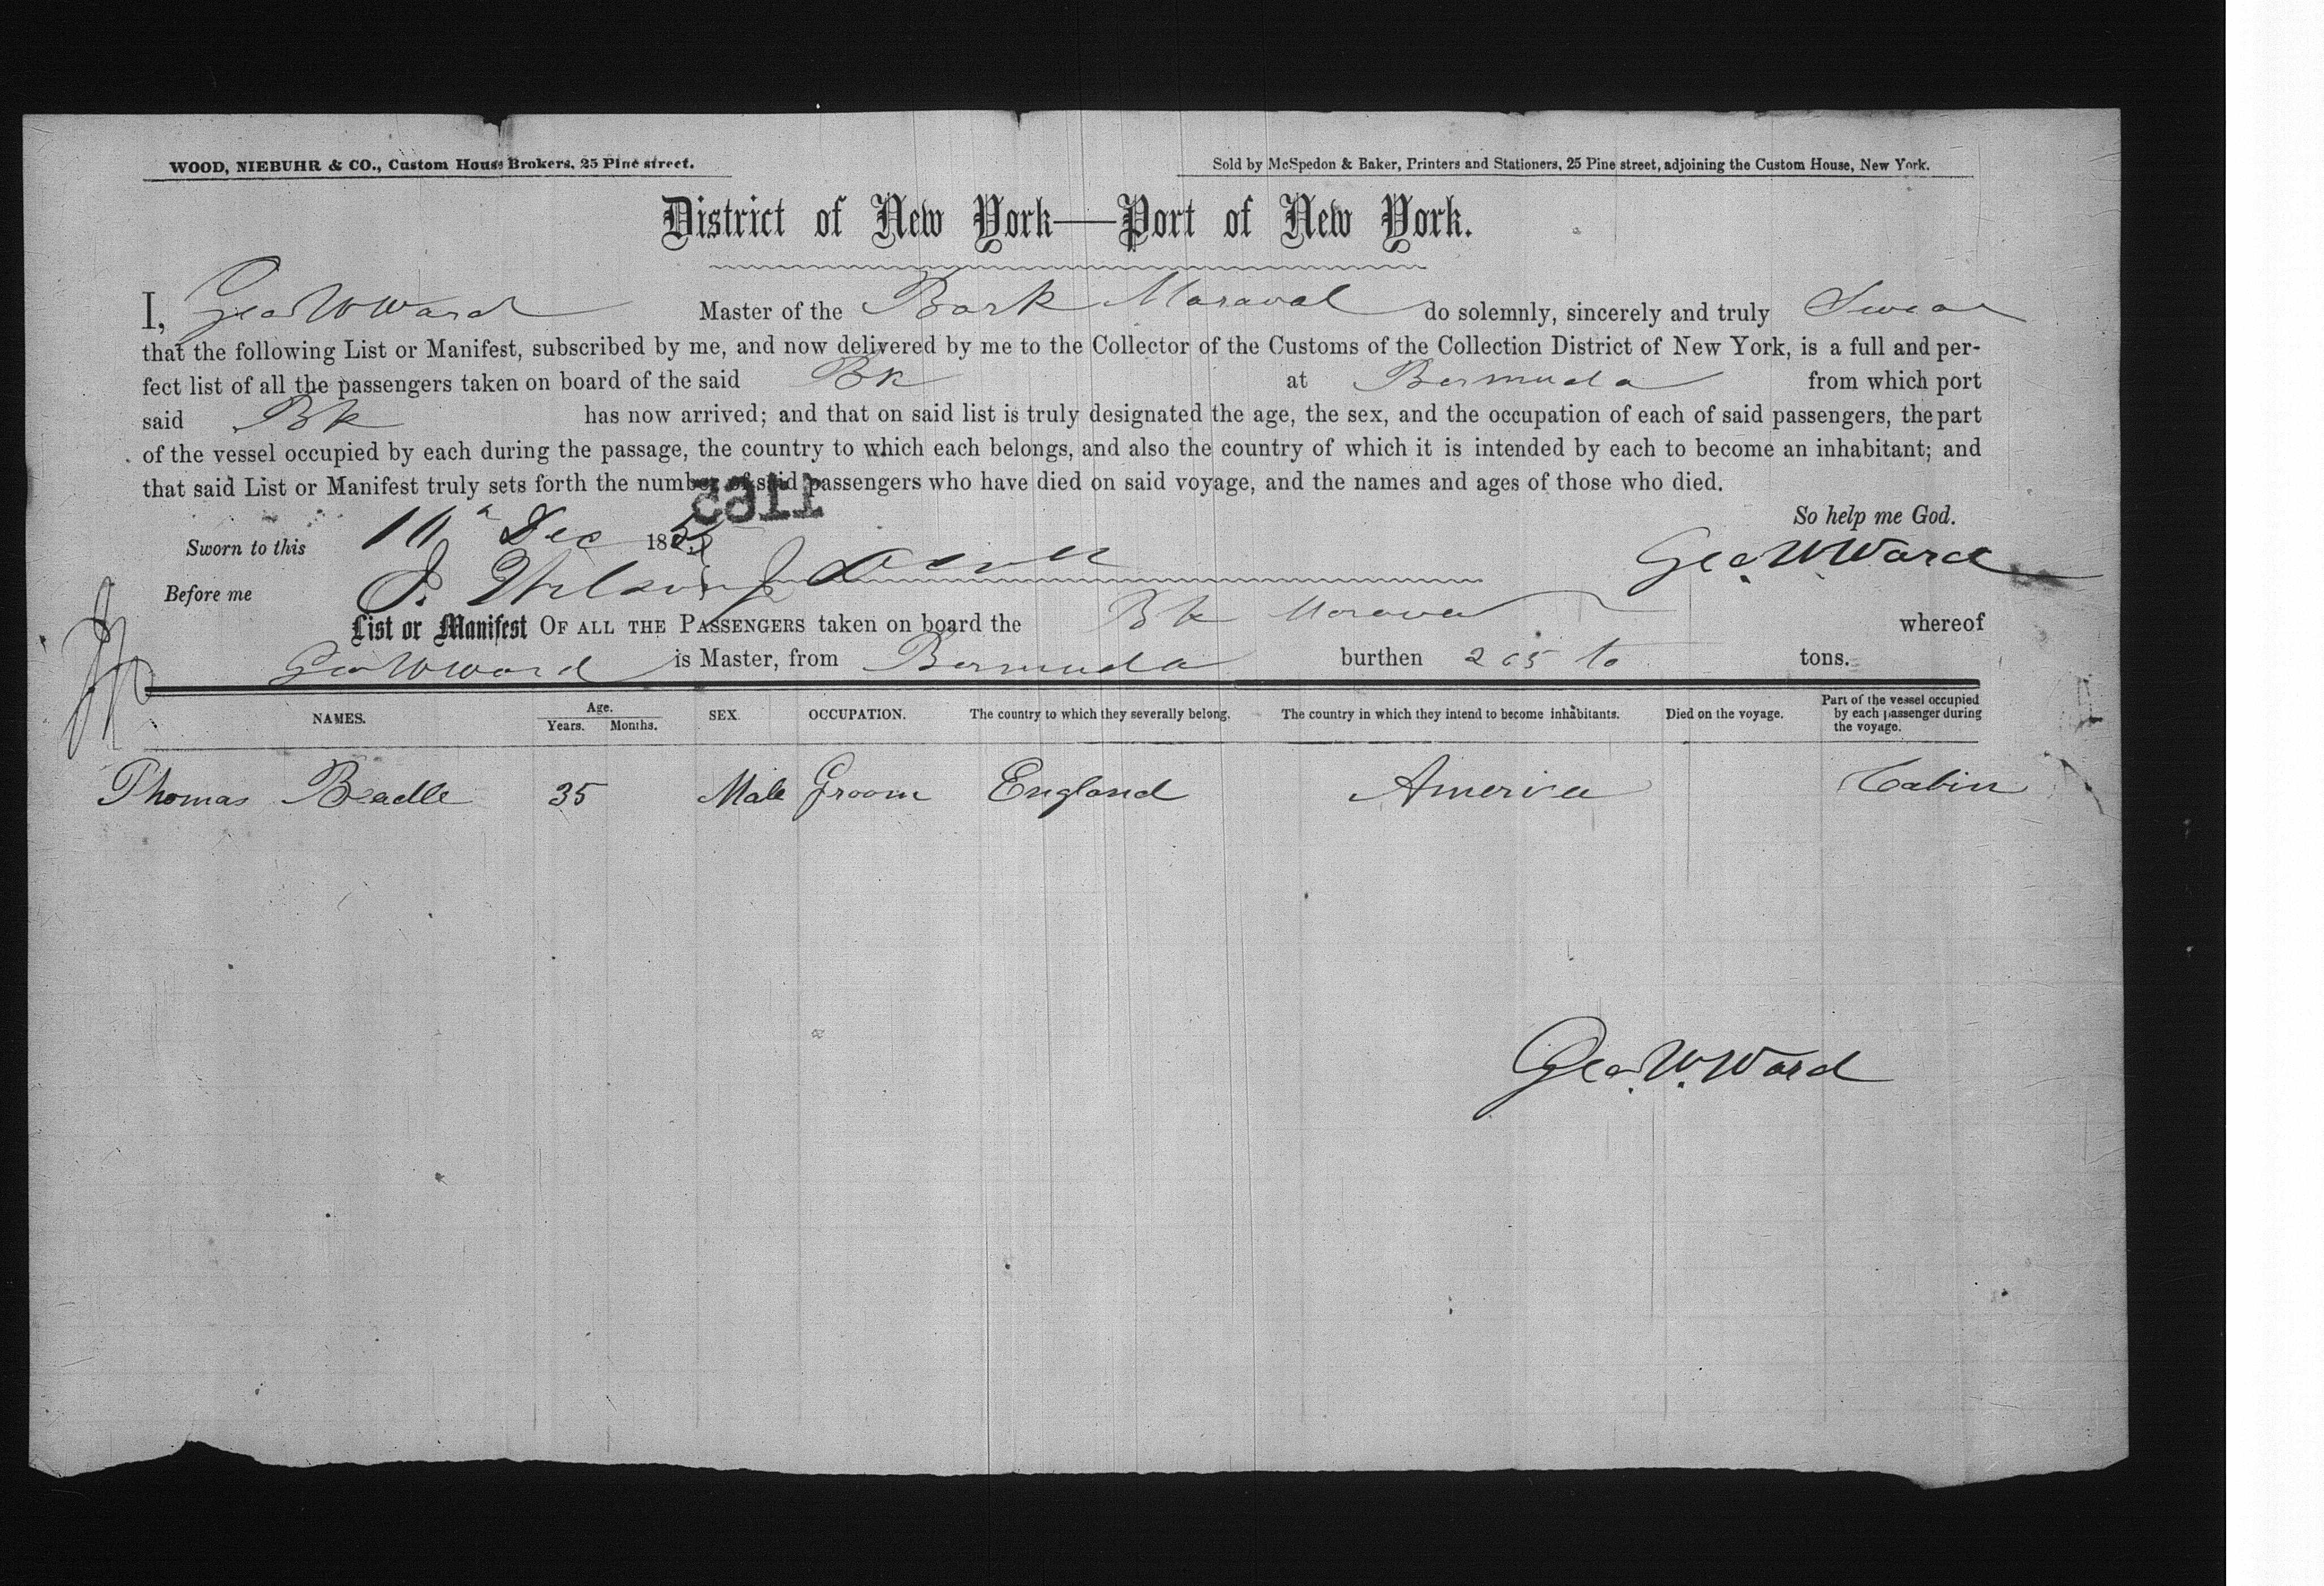 WOOD, NIEBUHR & CO., Custom House Brokers, 25 Pine street.
Sold by McSpedon & Baker, Printers and Stationers, 25 Pine street, adjoining the Custom House, New York.
District of New York—Port of New York.
I, Geo W Ward Master of the Bark Maraval do solemnly, sincerely and truly Swear
that the following List or Manifest, subscribed by me, and now delivered by me to the Collector of the Customs of the Collection District of New York, is a full and per-
fect list of all the passengers taken on board of the said Bk at Bermuda from which port
said Bk has now arrived; and that on said list is truly designated the age, the sex, and the occupation of each of said passengers, the part
of the vessel occupied by each during the passage, the country to which each belongs, and also the country of which it is intended by each to become an inhabitant; and
that said List or Manifest truly sets forth the number of said passengers who have died on said voyage, and the names and ages of those who died.
So help me God.
Sworn to this Dec 18
Geo. W. Ward
Before me
List or Manifest OF ALL THE PASSENGERS taken on board the Bk Maraval whereof
Geo W Ward is Master, from Bermuda burthen 265 to tons.
NAMES. Age. Years. Months. SEX. OCCUPATION. The country to which they severally belong. The country in which they intend to become inhabitants. Died on the voyage. Part of the vessel occupied by each passenger during the voyage.
Thomas Beadle 35 Male Groom England America Cabin
Geo. W. Ward